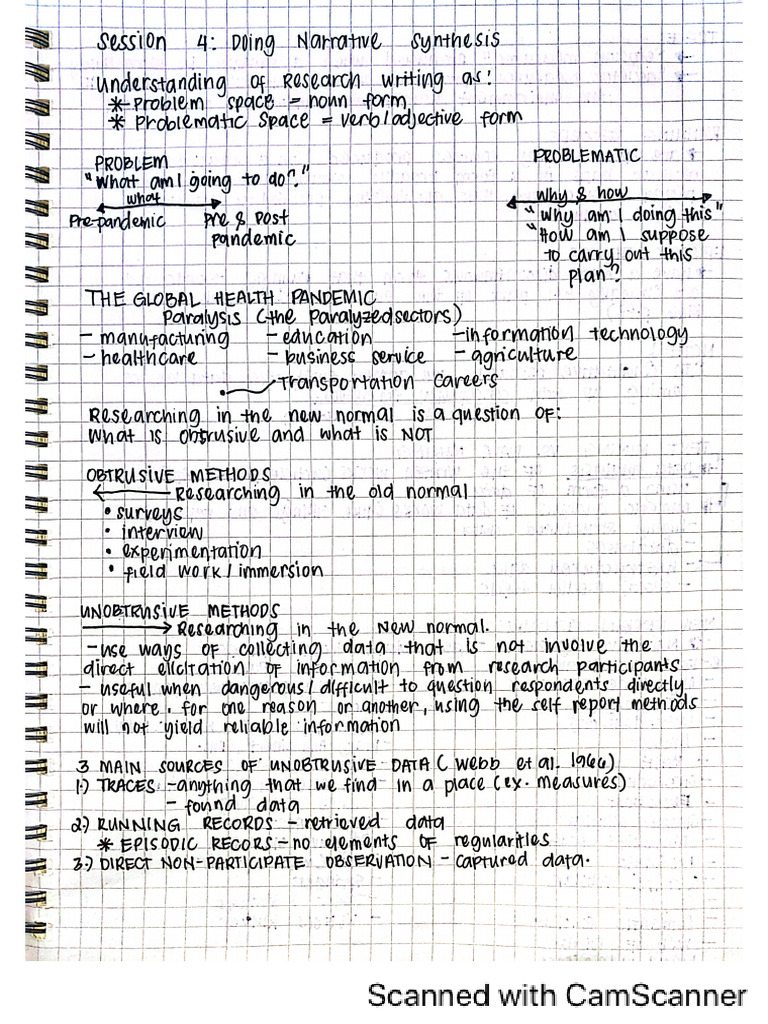 Session 4: Doing Narrative Synthesis
Understanding of Research Writing as:
* Problem space = noun form
* Problematic Space = verb/adjective form
PROBLEM
"What am I going to do?"
what
Pre-pandemic
Pre & Post
pandemic
PROBLEMATIC
Why & how
"Why am I doing this"
"How am I suppose
to carry out this
plan?
THE GLOBAL HEALTH PANDEMIC
Paralysis (the paralyzed sectors)
- manufacturing - education - information technology
- healthcare - business service - agriculture
Transportation careers
Researching in the new normal is a question of:
What is obtrusive and what is NOT
OBTRUSIVE METHODS
Researching in the old normal
• surveys
• interview
• experimentation
• field work/immersion
UNOBTRUSIVE METHODS
Researching in the New normal.
- use ways of collecting data that is not involve the
direct elicitation of information from research participants
- useful when dangerous/difficult to question respondents directly
or where. for one reason or another, using the self report methods
will not yield reliable information
3 MAIN SOURCES OF UNOBTRUSIVE DATA (Webb et al. 1966)
1.) TRACES - anything that we find in a place (ex. measures)
- found data
2.) RUNNING RECORDS - retrieved data
* EPISODIC RECORS - no elements of regularities
3.) DIRECT NON-PARTICIPATE OBSERVATION - captured data.
Scanned with CamScanner